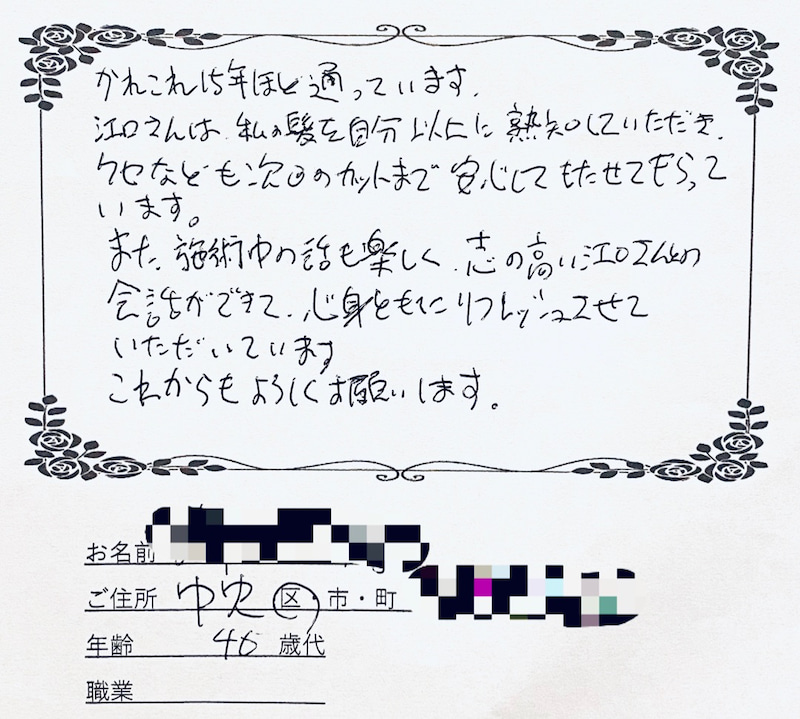 かれこれ15年ほど通っています。
江口さんは、私の髪を自分以上に熟知していただき、
クセなども次回のカットまで安心してもたせてもらって
います。
また、施術中の話も楽しく、志の高い江口さんとの
会話ができて、心身ともにリフレッシュさせて
いただいています
これからもよろしくお願いします。
お名前
ご住所 中央 区・市・町
年齢 46 歳代
職業